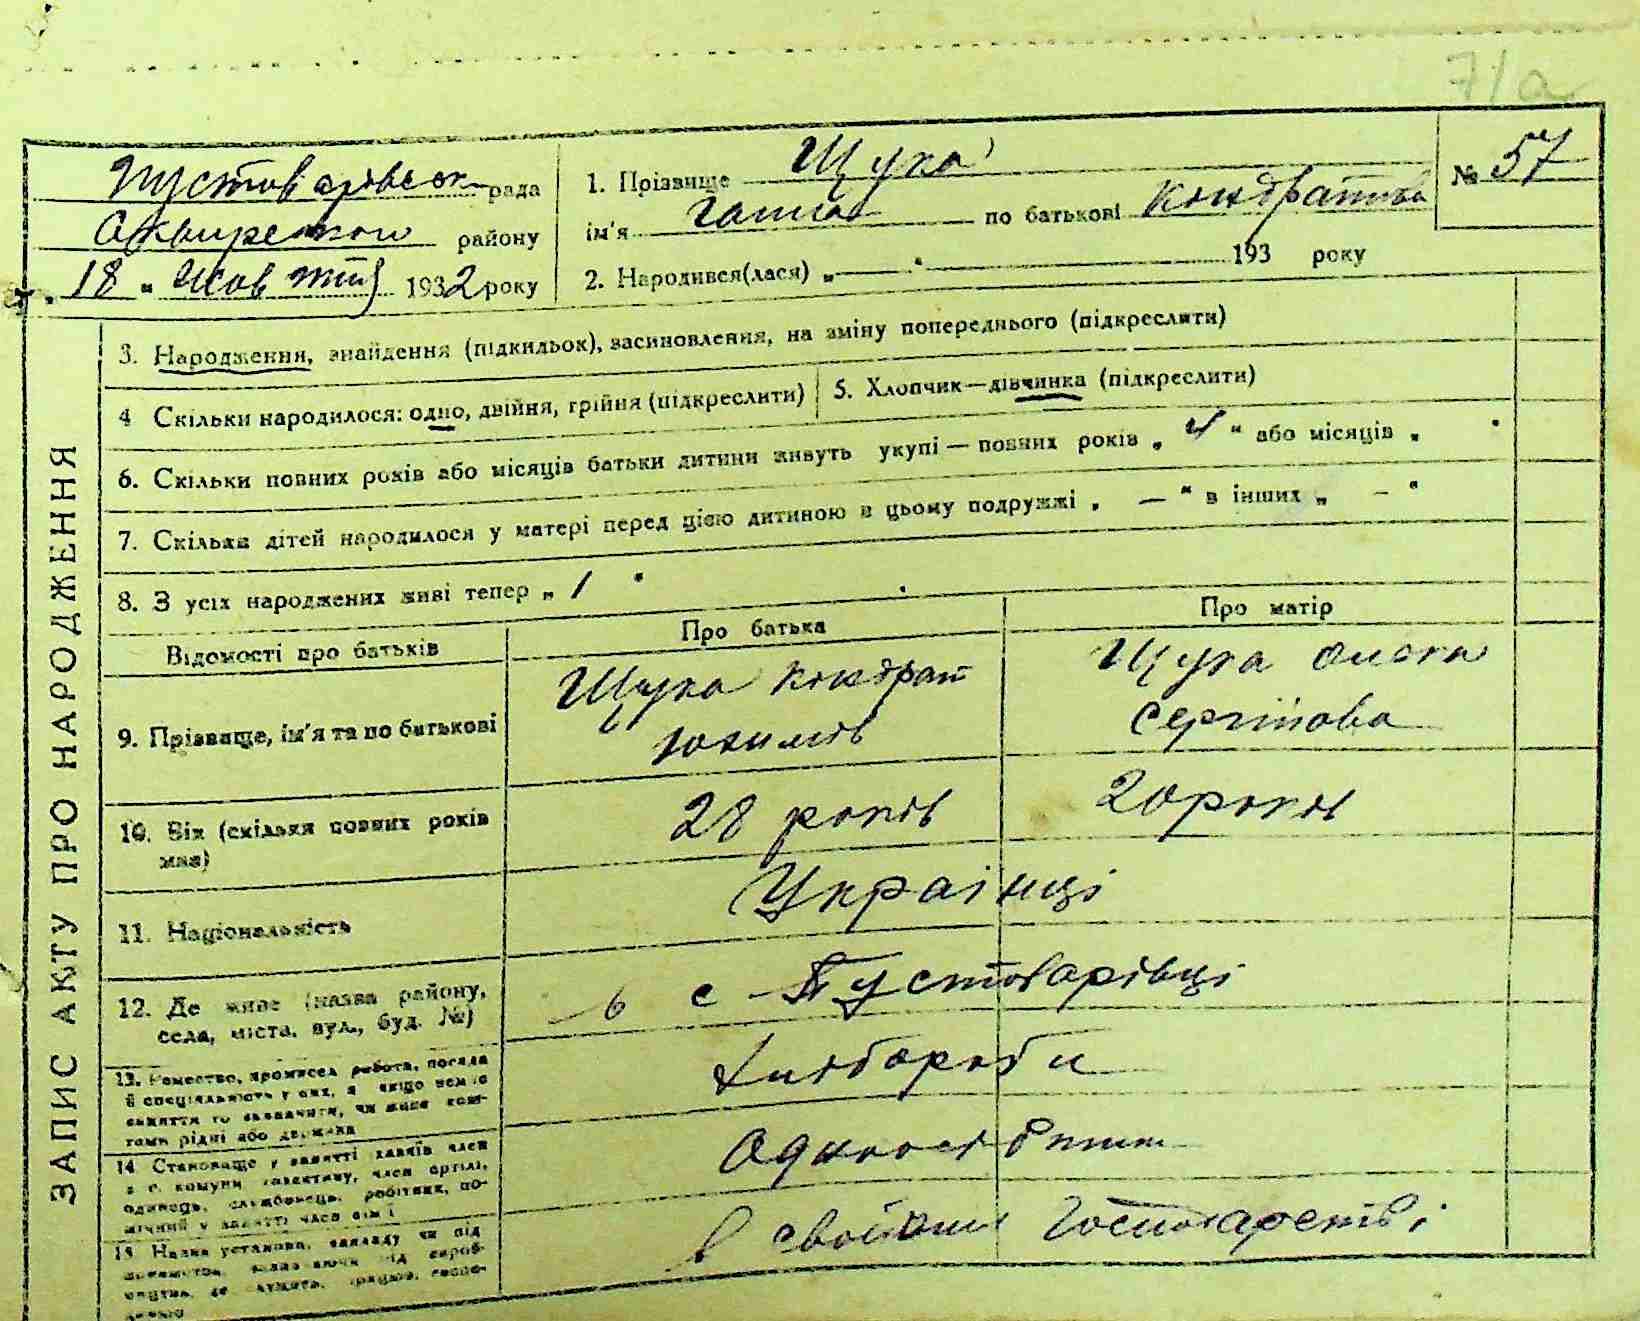 71а
Пустоварівськ рада
Сквирського району
"18" Жовтня 1932 року
1. Прізвище Щука
ім'я Ганна по батькові Кондратівна
№ 57
2. Народився(лася) „ — " — 193 року
ЗАПИС АКТУ ПРО НАРОДЖЕННЯ
3. Народження, знайдення (підкидьок), засиновлення, на зміну попереднього (підкреслити)
4 Скільки народилося: одно, двійня, трійня (підкреслити)
5. Хлопчик—дівчинка (підкреслити)
6. Скільки повних років або місяців батьки дитини живуть укупі — повних років „ " або місяців „ "
7. Скільки дітей народилося у матері перед цією дитиною в цьому подружжі „ — " в інших „ — "
8. З усіх народжених живі тепер „ 1 "
Відомості про батьків
Про батька
Про матір
9. Прізвище, ім'я та по батькові
Щука Кондрат
Юхимів
Щука
Сергіївова
10. Вік (скільки повних років
має)
28 років
20 років
11. Національність
Українці
12. Де живе (назва району,
села, міста, вул., буд. №)
в с Пустоварівці
13. Ремество, промисел робота, посада
й спеціяльність у них, а якщо немає
заняття то зазначити, чи живе кош-
тами рідні або держави
Хлібороби
14 Становище у занятті
комуни колективу, член артілі,
одинець, службовець, робітник, по-
мічний у занятті член сім'ї
Одноосібники
15 Назва установи, закладу чи під
в своїому господарстві